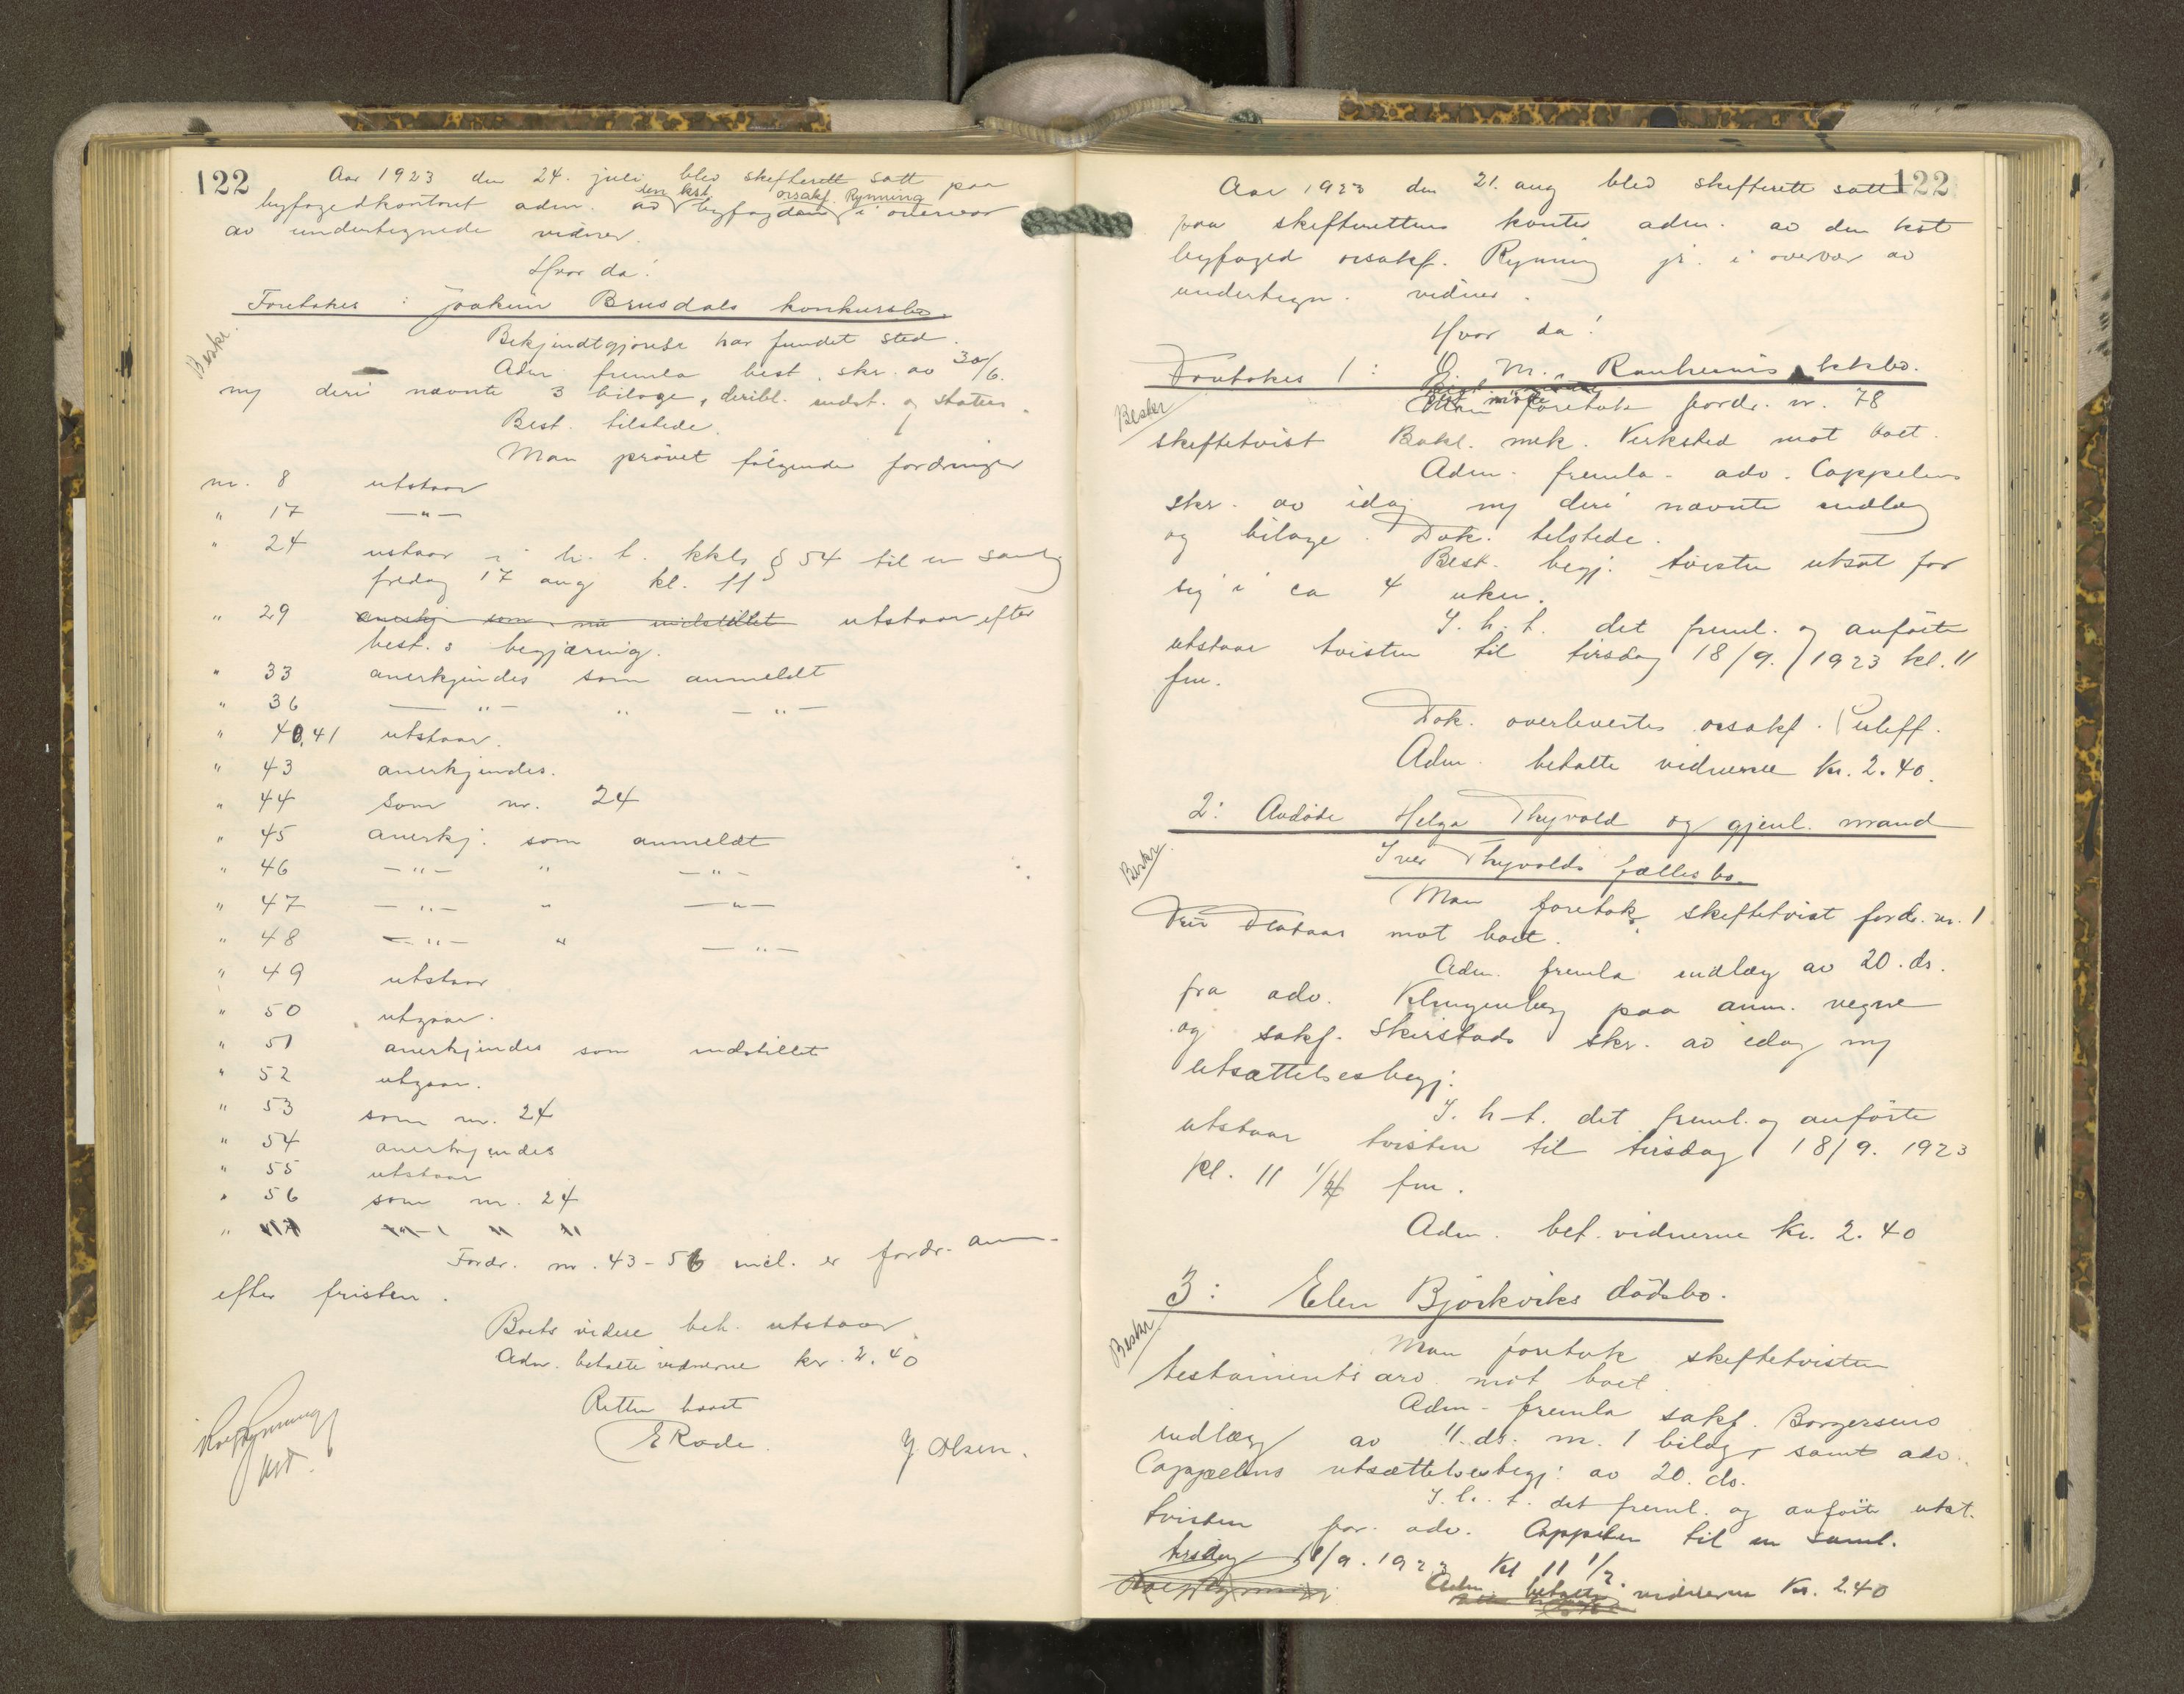 122
Aar 1923 den 24. juli blev skifterett satt paa
byfogedkontoret adm. av den kst byfogden orsakf. Rynning i overvær
av undertegnede vidner.
Hvor da!
Foretokes: Joakim Brusdals konkursbo.
Beskr.
Bekjendtgjørelse har fundet sted.
Adm. fremla best. skr. av 30/6.
mj deri nævnte 3 bilage, deribl. indst. og status.
Best. tilstede.
Man prøvet følgende fordringer
nr. 8 utstaar
" 17 —"—
" 24 utstaar i h. t. kkl. § 54 til en samling
fredag 17 aug kl. 11
" 29 anerkj som nu indstillet utstaar efter
best.s begjæring.
" 33 anerkjendes som anmeldt
" 36 —"— " —"—
" 40, 41 utstaar.
" 43 anerkjendes.
" 44 som nr. 24
" 45 anerkj. som anmeldt
" 46 —"— " —"—
" 47 —"— " —"—
" 48 —"— " —"—
" 49 utstaar
" 50 utgaar.
" 51 anerkjendes som indstillet
" 52 utgaar.
" 53 som nr. 24
" 54 anerkjendes
" 55 utstaar
" 56 som nr. 24
"
Fordr. nr. 43-56 incl. er fordr. anm.
efter fristen.
Boets videre beh. utstaar.
Adm. betalte vidnerne kr. 2.40
Retten hævet
Rolf Rynning
kst.
E Rode.
J. Olsen.
122
Aar 1923 den 21. aug blev skifterett satt
paa skifterettens kontor adm. av den kst
byfoged orsakf. Rynning jr. i overvær av
undertegn. vidner.
Hvor da!
Foretokes 1: O. M. Ranheims kkbo.
Beskr
Man foretok fordr. nr. 78
skiftetvist Bakl. mek. Verksted mot boet.
Adm. fremla adv. Cappelens
skr. av idag mj deri nævnte indlæg
og bilage. Dok. tilstede.
Best. begj. tvisten utsat for
sig i ca 4 uker.
I. h. t. det freml. og anførte
utstaar tvisten til tirsdag 18/9. 1923 kl. 11
fm.
Dok. overlevertes orsakf.
Adm. betalte vidnerne kr. 2.40.
2: Avdøde Helga Thyvold og gjenl. mand
Iver Thyvolds fællesbo.
Beskr.
Man foretok skiftetvist fordr. nr. 1
mot boet.
Adm. fremla indlæg av 20. ds.
fra adv. Klingenberg paa anm. vegne
og sakf. Skirstads skr. av idag mj
utsættelsesbegj.
I. h. t. det freml. og anførte
utstaar tvisten til tirsdag 18/9. 1923
kl. 11 1/4 fm.
Adm. bet. vidnerne kr. 2.40
3: Elen Bjørkviks dødsbo.
Beskr.
Man foretok skiftetvisten
testamentsarv mot boet.
Adm. fremla sakf. Borgersens
indlæg av 11. ds. m. 1 bilag, samt adv.
Cappelens utsættelsesbegj. av 20. ds.
I. h. t. det freml. og anførte utst.
tvisten for adv. Cappelen til en saml.
tirsdag 18/9. 1923 kl 11 1/2.
Adm. betalte vidnerne kr. 2.40